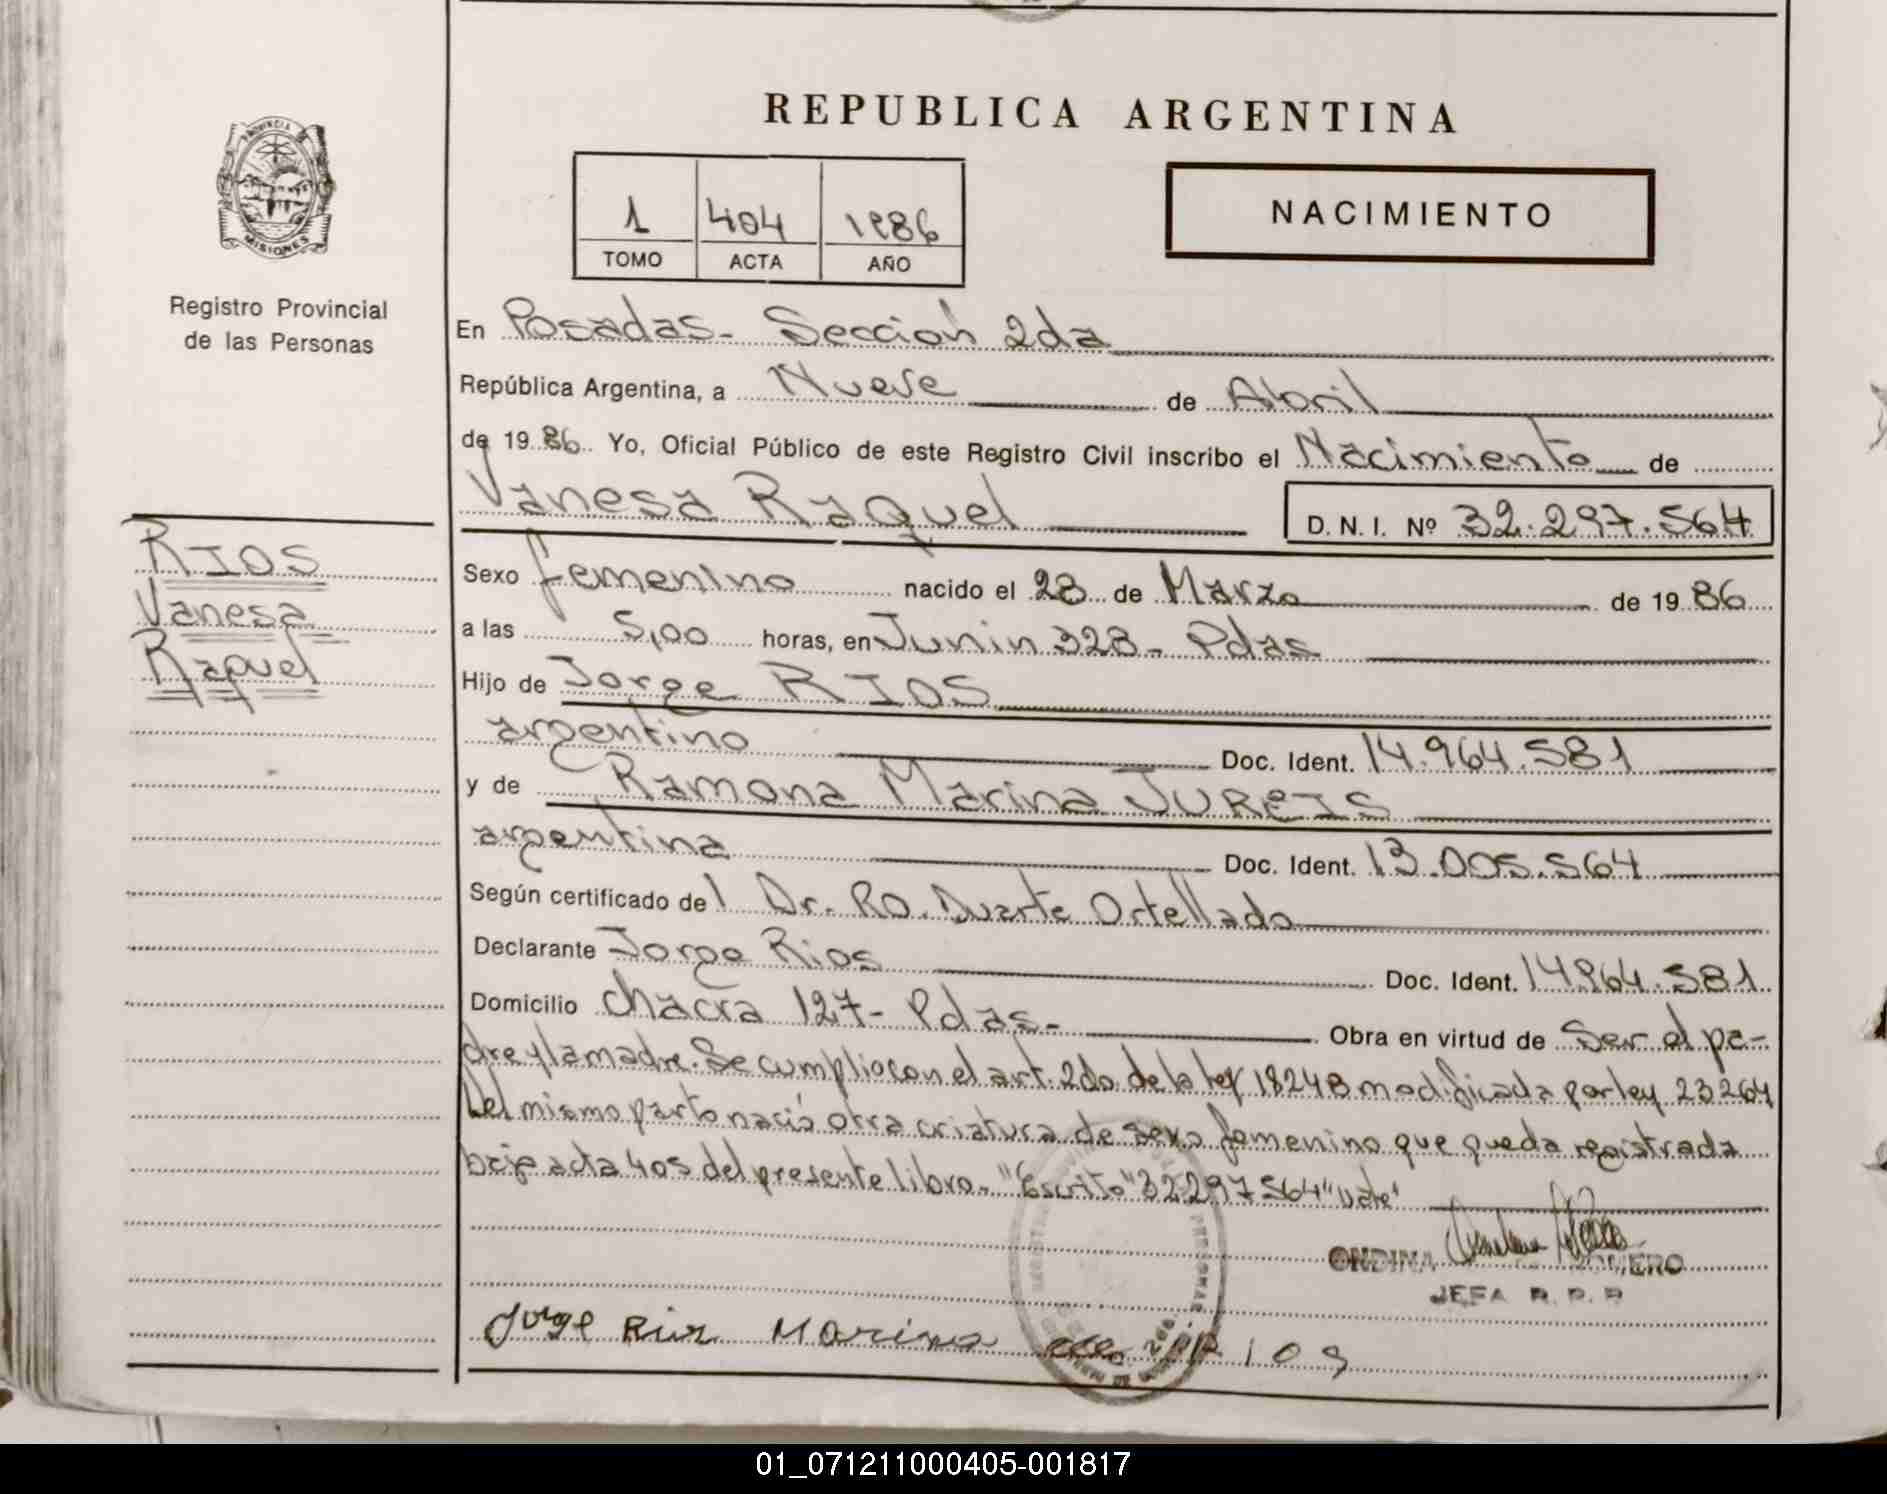 REPUBLICA ARGENTINA
PROVINCIA DE
MISIONES
Registro Provincial
de las Personas
1 404 1986
TOMO ACTA AÑO
NACIMIENTO
En Posadas - Sección 2da
República Argentina, a Nueve de Abril
de 1986 Yo, Oficial Público de este Registro Civil inscribo el Nacimiento de
Vanesa Raquel D.N.I. Nº 32.297.564
RIOS
Vanesa
Raquel
Sexo femenino nacido el 28 de Marzo de 1986
a las 5,00 horas, en Junin 328 - Pdas
Hijo de Jorge RIOS
argentino Doc. Ident. 14.964.581
y de Ramona Marina JUREIS
argentina Doc. Ident. 13.005.564
Según certificado del Dr. RO. Duarte Ortellado
Declarante Jorge Rios Doc. Ident. 14964.581
Domicilio Chacra 127 - Pdas. - Obra en virtud de Ser el pa-
dre y la madre. Se cumplio con el art. 2do de la ley 18248 modificada por ley 23264
Del mismo parto nació otra criatura de sexo femenino que queda registrada
bajo acta 405 del presente libro. - "Escrito" 32297564 "Vale"
ONDINA ROMERO
JEFA R. P. P
Jorge Rios Marina de Rios
01_071211000405-001817